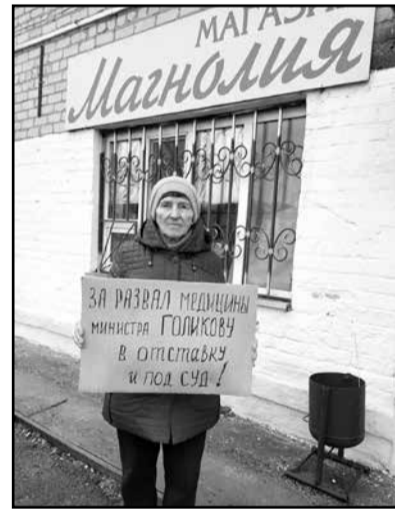 МАГАЗИ
Магнолия
ЗА РАЗВАЛ МЕДИЦИНЫ
МИНИСТРА ГОЛИКОВУ
В отставку
и под СУД !